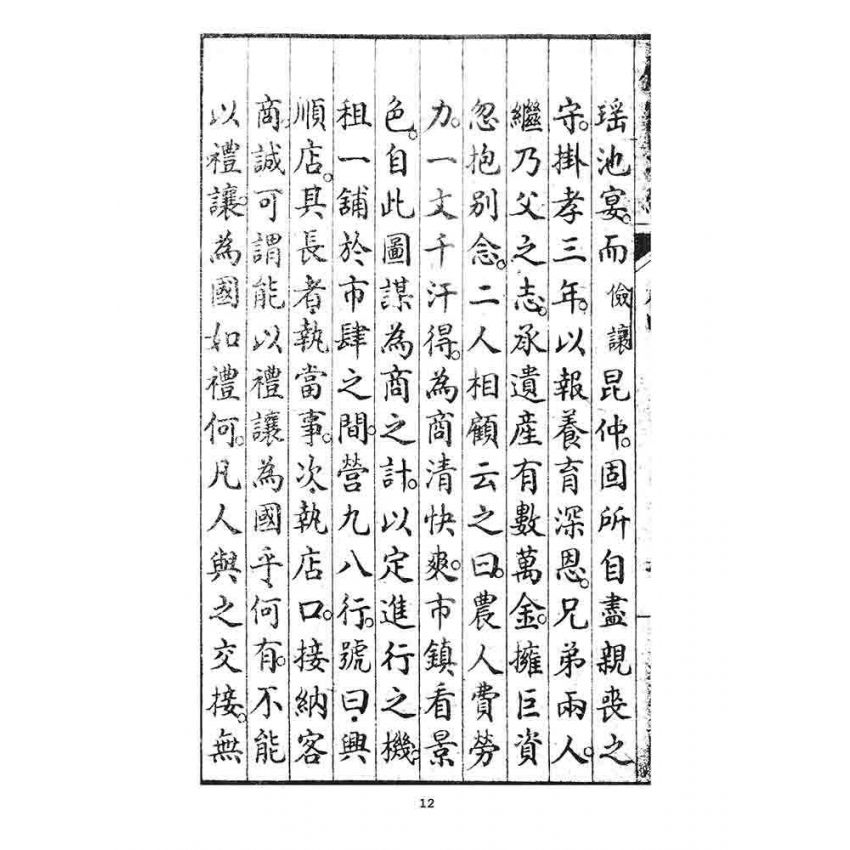 瑶池宴。而儉讓昆仲。固所自盡親喪之
守。掛孝三年。以報養育深恩。兄弟兩人。
繼乃父之志。承遺産有數萬金。擁巨資
忽抱別念。二人相顧云之曰。農人費勞
力。一文千汗得。為商清快爽。市鎮看景
色。自此圖謀為商之計。以定進行之機。
租一舖於市肆之間。營九八行。號曰。興
順店。其長者。執當事。次。執店口。接納客
商。誠可謂能以禮讓為國乎。何有。不能
以禮讓。為國如禮何。凡人與之交接。無
12